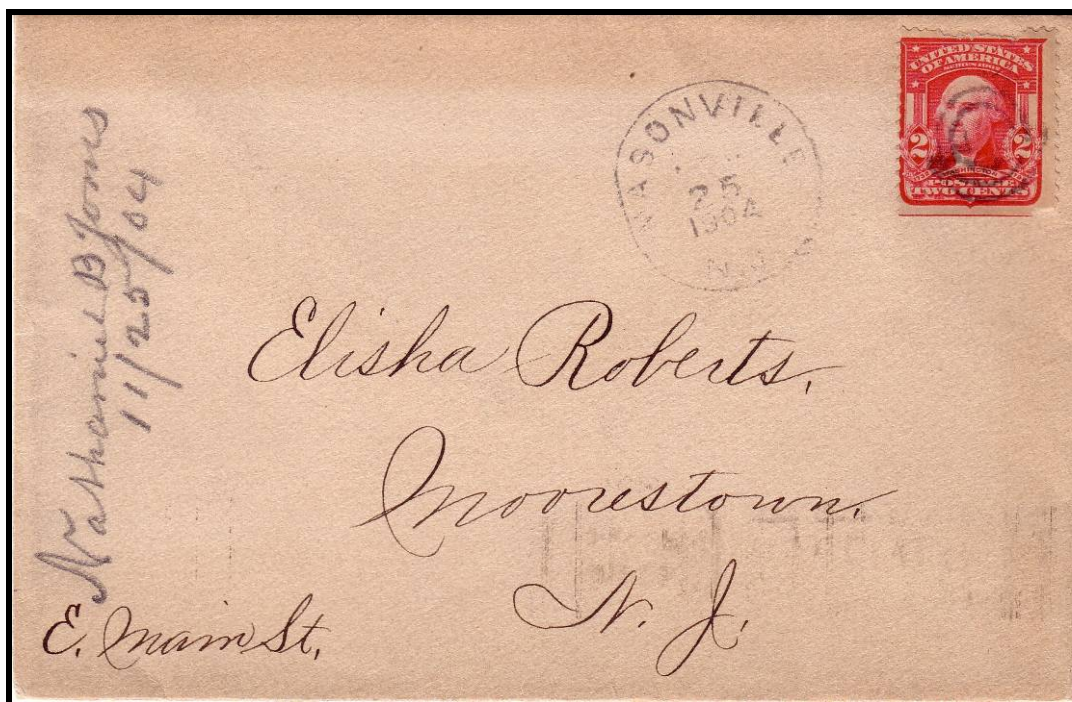 Nathaniel B Joms
11/25/04
MASONVILLE
25
1904
N.J.
UNITED STATES
OF AMERICA
2 2
POSTAGE
TWO CENTS
Elisha Roberts,
Moorestown,
N. J.
E. Main St.